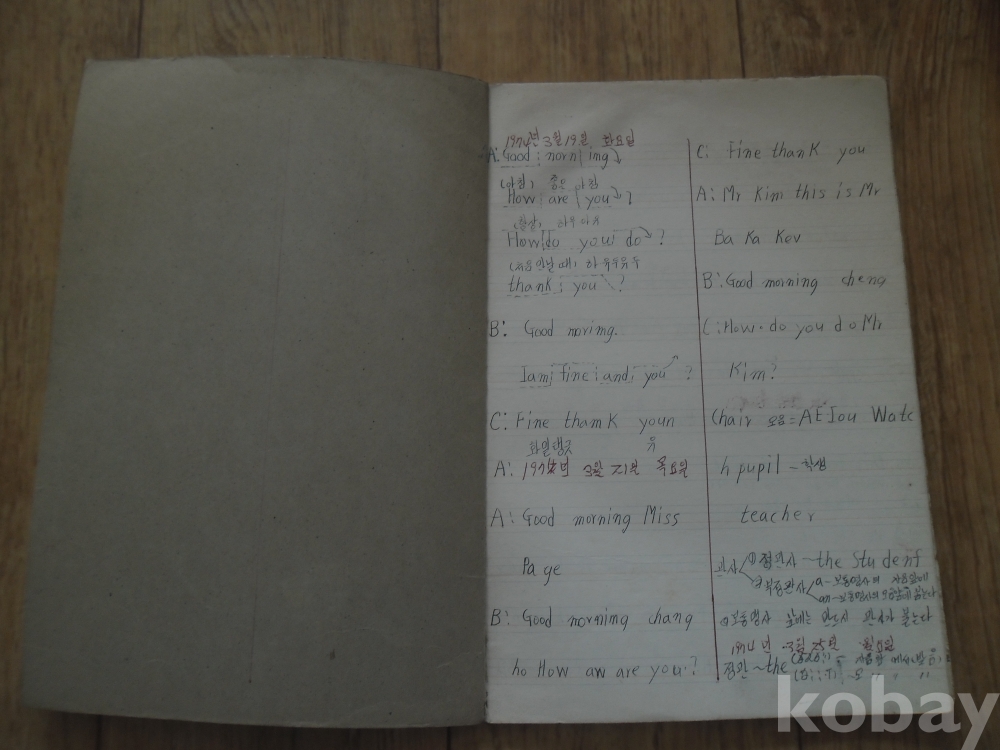 1974년 3월 19일 화요일
A: Good norn ing
(아침) 좋은 아침
How are you ?
하우 아 유
How do you do ?
(처음 만날 때)
thank you ?
B: Good noring.
I am fine and you ?
C: Fine thamk youn
유
A: 1974년 3월 21일 목요일
A: Good morning Miss
Pa ge
B: Good morning chang
ho How aw are you?
C: Fine thank you
A: Mr Kim this is Mr
Ba Ka Kev
B: Good morning cheng
C: How do you do Mr
Kim?
Chair 모음=AEIou Watc
h pupil ~ 학생
teacher
관사 ①정관사 ~ the Student
②부정관사 a - 보통명사의 자음앞에
an - 보통명사의 모음앞에 붙는다
보통명사 앞에는 반드시 관사가 붙는다
1974년 3월 25일 월요일
정관 ~ the
kobay